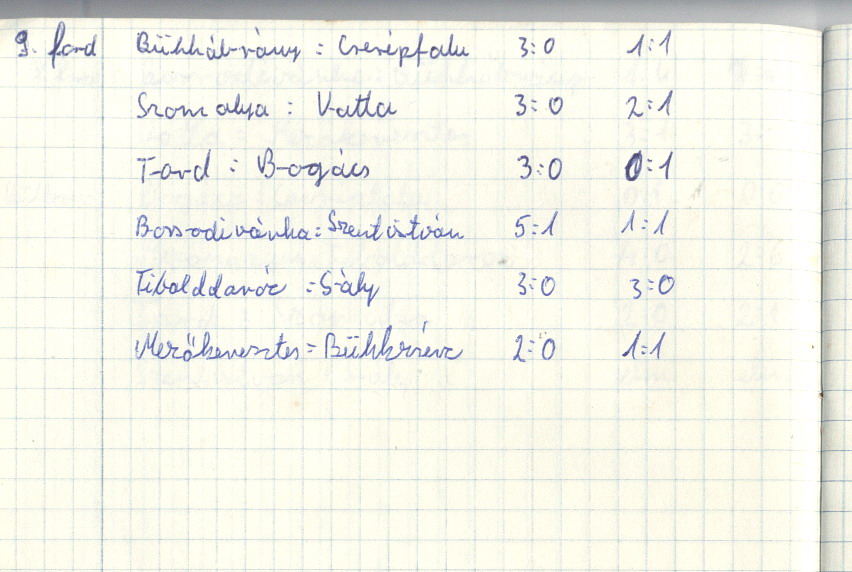 9. ford Bükkábrány : Cserépfalu 3:0 1:1
Szomolya : Vatta 3:0 2:1
Tard : Bogács 3:0 0:1
Borsodivánka : Szentistván 5:1 1:1
Tibolddaróc : Sály 3:0 3:0
Mezőkeresztes : Bükkzsérc 2:0 1:1